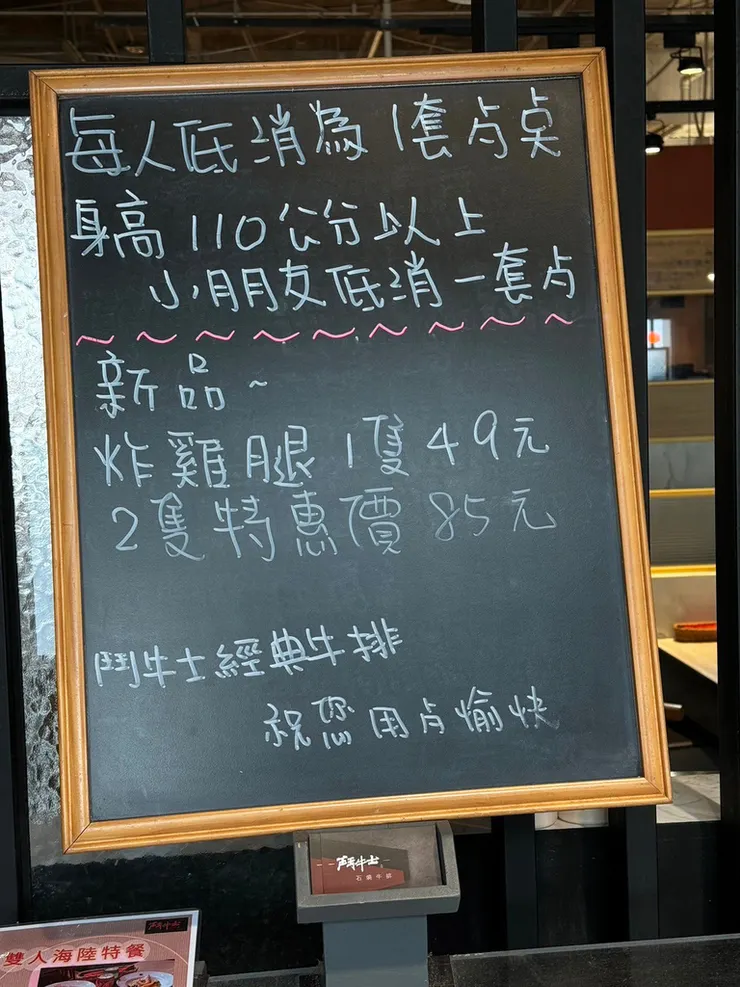 每人低消為1套歺奌
身高110公分以上
小朋友低消一套歺
新品~
炸雞腿1隻49元
2隻特惠價85元
鬥牛士經典牛排
祝您用歺愉快
鬥牛士
石燒牛排
鬥牛士
雙人海陸特餐